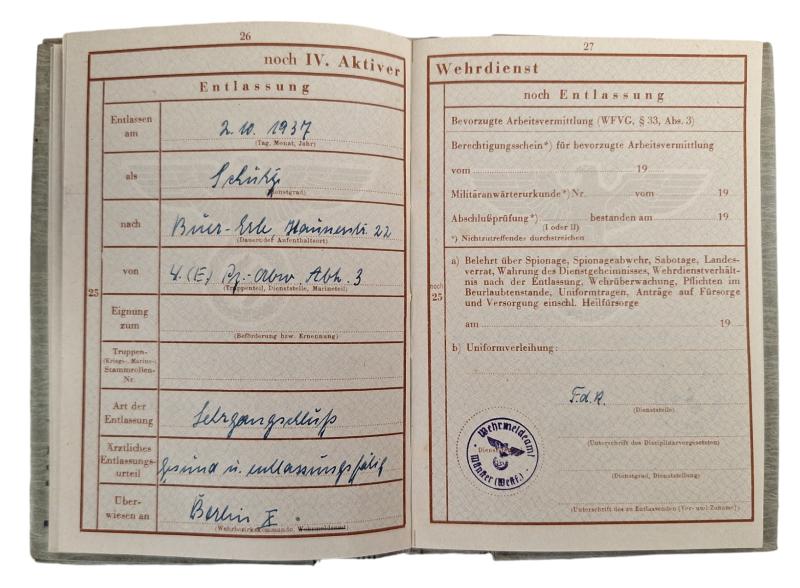 26
noch IV. Aktiver
Entlassung
Entlassen am 2.10.1937
(Tag, Monat, Jahr)
als Schütze
(Dienstgrad)
nach Buer-Erle, Straße 22
(Dauernder Aufenthaltsort)
von 4.(E) Pz.-Abw. Abt. 3
(Truppenteil, Dienststelle, Marineteil)
25
Eignung zum
(Beförderung bzw. Ernennung)
Truppen-
(Kriegs-, Marine-)
Stammrollen-
Nr.
Art der Entlassung Lehrgangschluß
Ärztliches Entlassungs-urteil gesund u. entlassungsfähig
Über-wiesen an Berlin X
(Wehrbezirkskommando, Wehrmeldeamt)
27
Wehrdienst
noch Entlassung
Bevorzugte Arbeitsvermittlung (WFVG, § 33, Abs. 3)
Berechtigungsschein*) für bevorzugte Arbeitsvermittlung
vom 19
Militäranwärterurkunde*) Nr. vom 19
Abschlußprüfung*) bestanden am 19
(I oder II)
*) Nichtzutreffendes durchstreichen
noch 25
a) Belehrt über Spionage, Spionageabwehr, Sabotage, Landes-
verrat, Wahrung des Dienstgeheimnisses, Wehrdienstverhält-
nis nach der Entlassung, Wehrüberwachung, Pflichten im
Beurlaubtenstande, Uniformtragen, Anträge auf Fürsorge
und Versorgung einschl. Heilfürsorge
am 19
b) Uniformverleihung:
F.d.R.
(Dienststelle)
Wehrmeldeamt
Münster (Westf.)
(Unterschrift des Disziplinarvorgesetzten)
(Dienstgrad, Dienststellung)
(Unterschrift des zu Entlassenden (Vor- und Zuname))